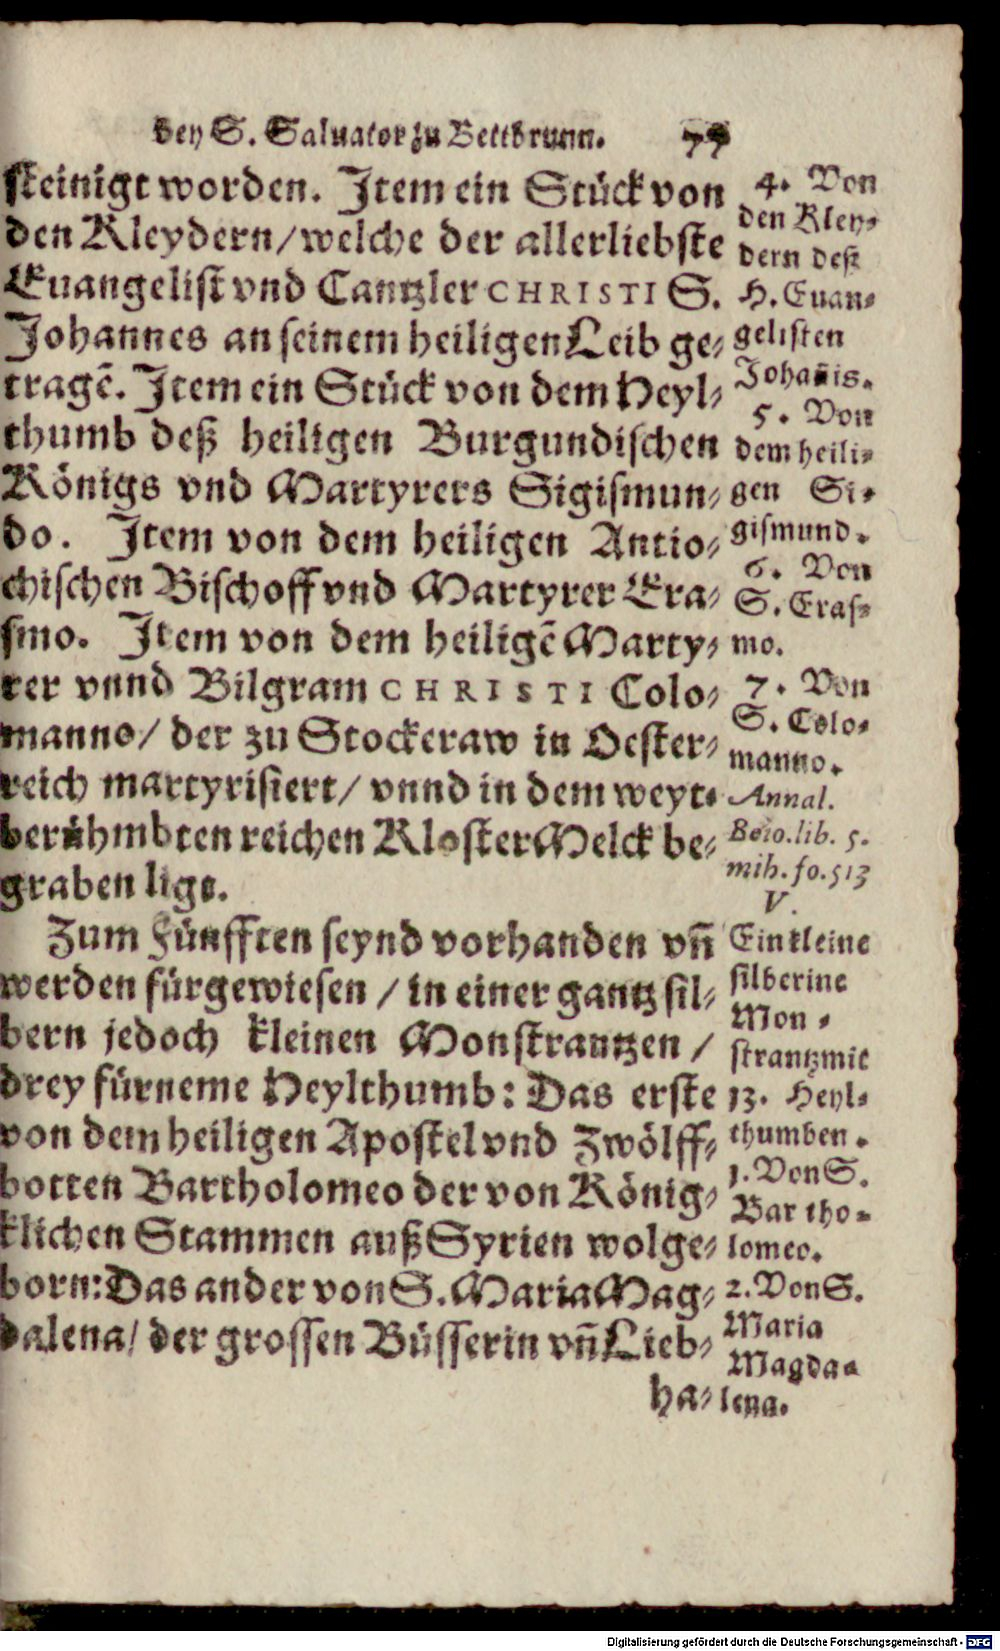 bey S. Saluator zu Bettbrunn. 77
steinigt worden. Item ein Stück von
den Kleydern/welche der allerliebste
Euangelist vnd Cantzler CHRISTI S.
Johannes an seinem heiligen Leib ge-
tragẽ. Item ein Stück von dem Heyl-
thumb deß heiligen Burgundischen
Königs vnd Martyrers Sigismun-
do. Item von dem heiligen Antio-
chischen Bischoff vnd Martyrer Era-
smo. Item von dem heiligẽ Marty-
rer vnnd Bilgram CHRISTI Colo-
manno/ der zu Stockeraw in Oester-
reich martyrisiert/ vnnd in dem weyt-
berühmbten reichen Kloster Melck be-
graben ligt.
Zum Fünfften seynd vorhanden vñ
werden fürgewiesen / in einer gantz sil-
bern jedoch kleinen Monstrantzen /
drey fürneme Heylthumb: Das erste
von dem heiligen Apostel vnd Zwölff-
botten Bartholomeo der von König-
klichen Stammen auß Syrien wolge-
born: Das ander von S. Maria Mag-
dalena/ der grossen Büsserin vñ Lieb-
ha-
4. Von
den Kley-
dern deß
H. Euan-
gelisten
Johañis.
5. Von
dem heili-
gen Si-
gismund.
6. Von
S. Eras-
mo.
7. Von
S. Colo-
manno.
Annal.
Boio. lib. 5.
mih. fo. 513
V.
Ein kleine
silberine
Mon-
strantz mit
13. Heyl-
thumben.
1. Von S.
Bartho-
lomeo.
2. Von S.
Maria
Magda-
lena.
Digitalisierung gefördert durch die Deutsche Forschungsgemeinschaft - DFG